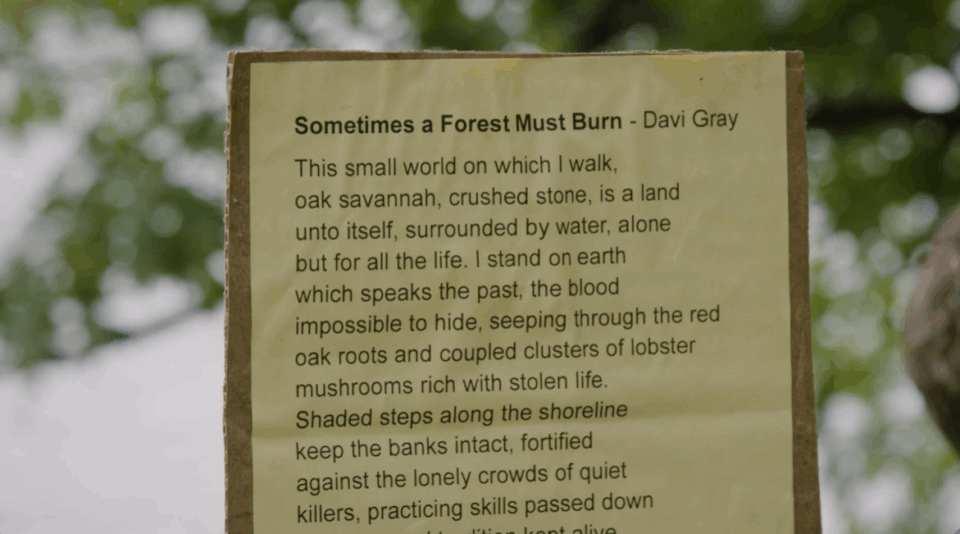 Sometimes a Forest Must Burn - Davi Gray
This small world on which I walk,
oak savannah, crushed stone, is a land
unto itself, surrounded by water, alone
but for all the life. I stand on earth
which speaks the past, the blood
impossible to hide, seeping through the red
oak roots and coupled clusters of lobster
mushrooms rich with stolen life.
Shaded steps along the shoreline
keep the banks intact, fortified
against the lonely crowds of quiet
killers, practicing skills passed down
kept alive